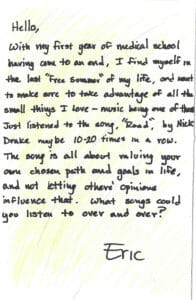 Hello,
With my first year of medical school
having come to an end, I find myself in
the last "free summer" of my life, and want
to make sure to take advantage of all the
small things I love - music being one of them
Just listened to the song, "Road, by Nick
Drake maybe 10-20 times in a row.
The song is all about valuing your
own chosen path and goals in life,
and not letting others' opinions
influence that. What songs could
you listen to over and over?
Eric